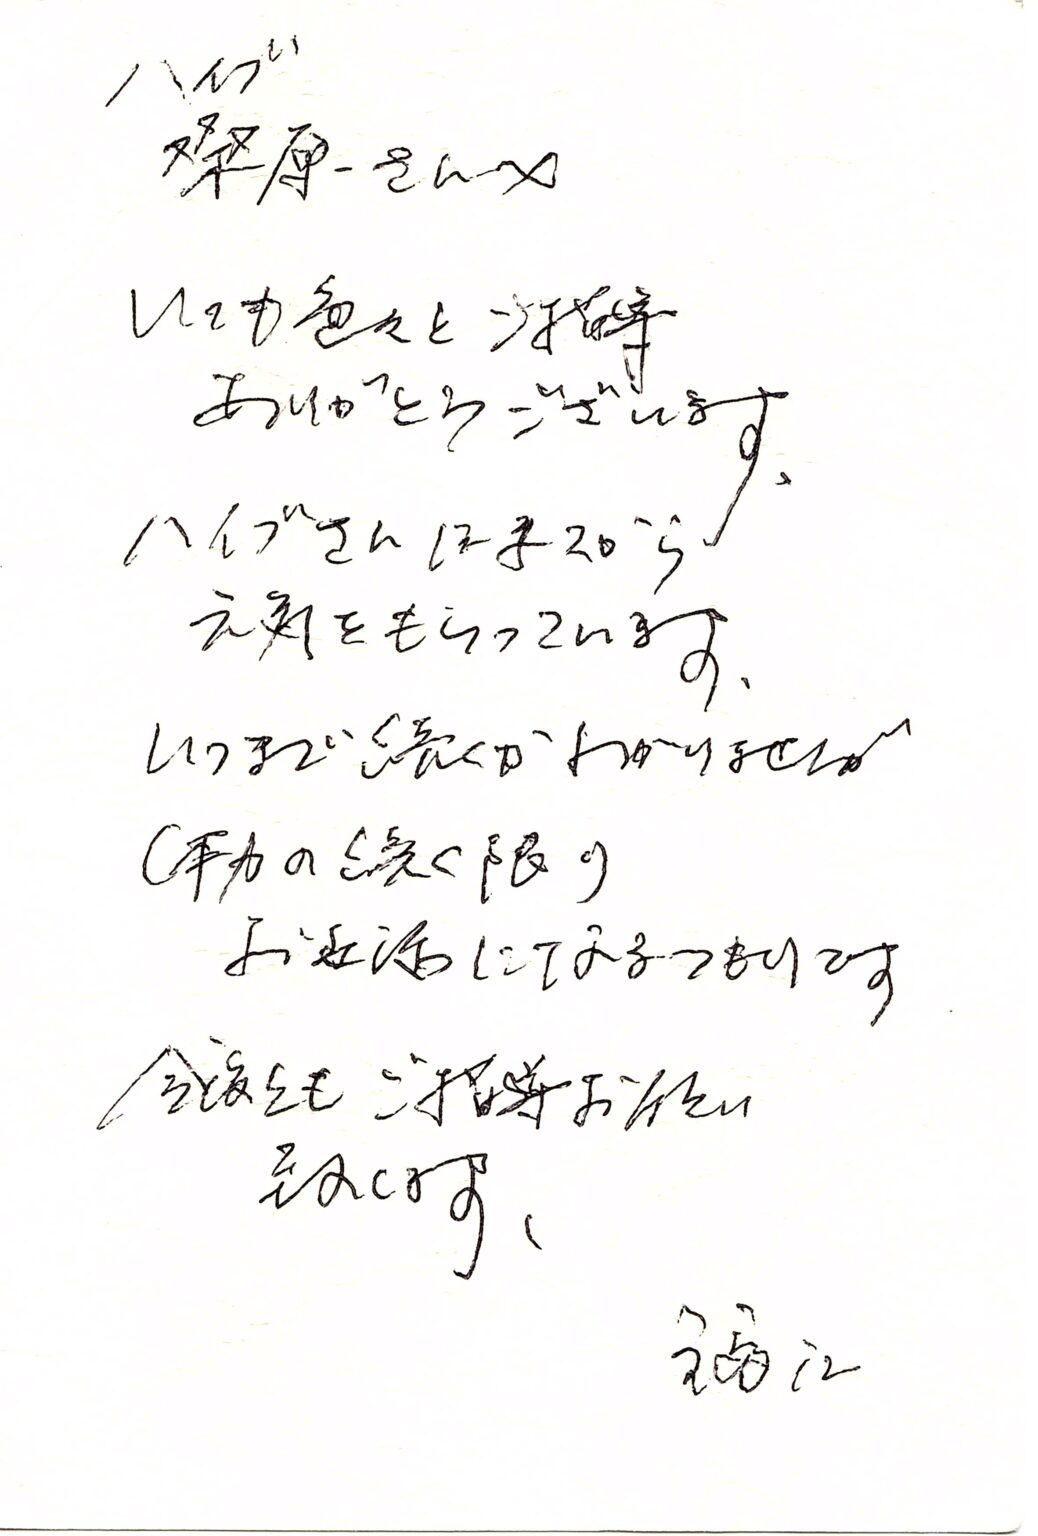 ハイブ
桑原さんへ
いつも色々とご指導
ありがとうございます、
ハイブさんはまえから
元気をもらっています、
いつまで続くかわかりませんが
体力の続く限り
お世話になるつもりです
今後ともご指導お願い
致します、